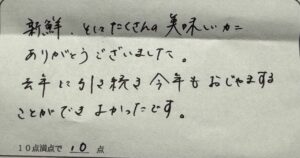 新鮮、そしてたくさんの美味しいカニ
ありがとうございました。
去年に引き続き今年もおじゃまする
ことができよかったです。
10点満点で 10 点